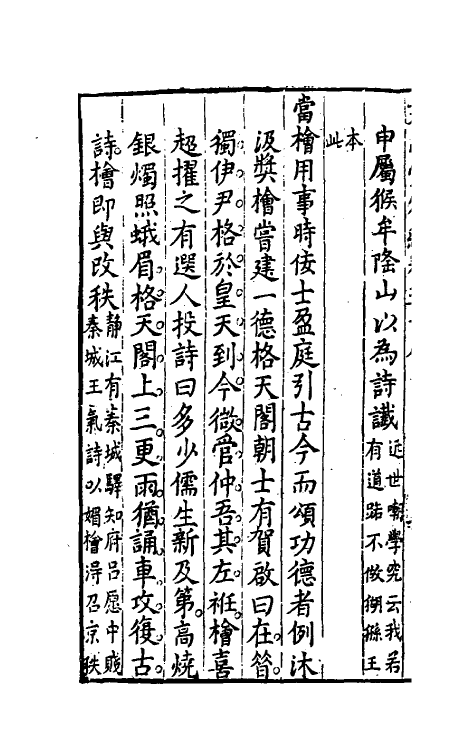 申屬猴牟隂山以為詩䜟近世嘲學究云我若有道路不做猢猻王
本此
當檜用事時佞士盈庭引古今而頌功德者例沐
汲奬檜嘗建一德格天閣朝士有賀啟曰在㫺。
獨伊尹格於皇天到今微管仲吾其左衽。檜喜
超擢之有選人投詩曰多少儒生新及第。高燒
銀燭照蛾眉。格天閣上三更雨猶誦車攻復古。
詩。檜即與改秩静江有秦城驛知府吕愿中賦秦城王氣詩以媚檜得召京秩